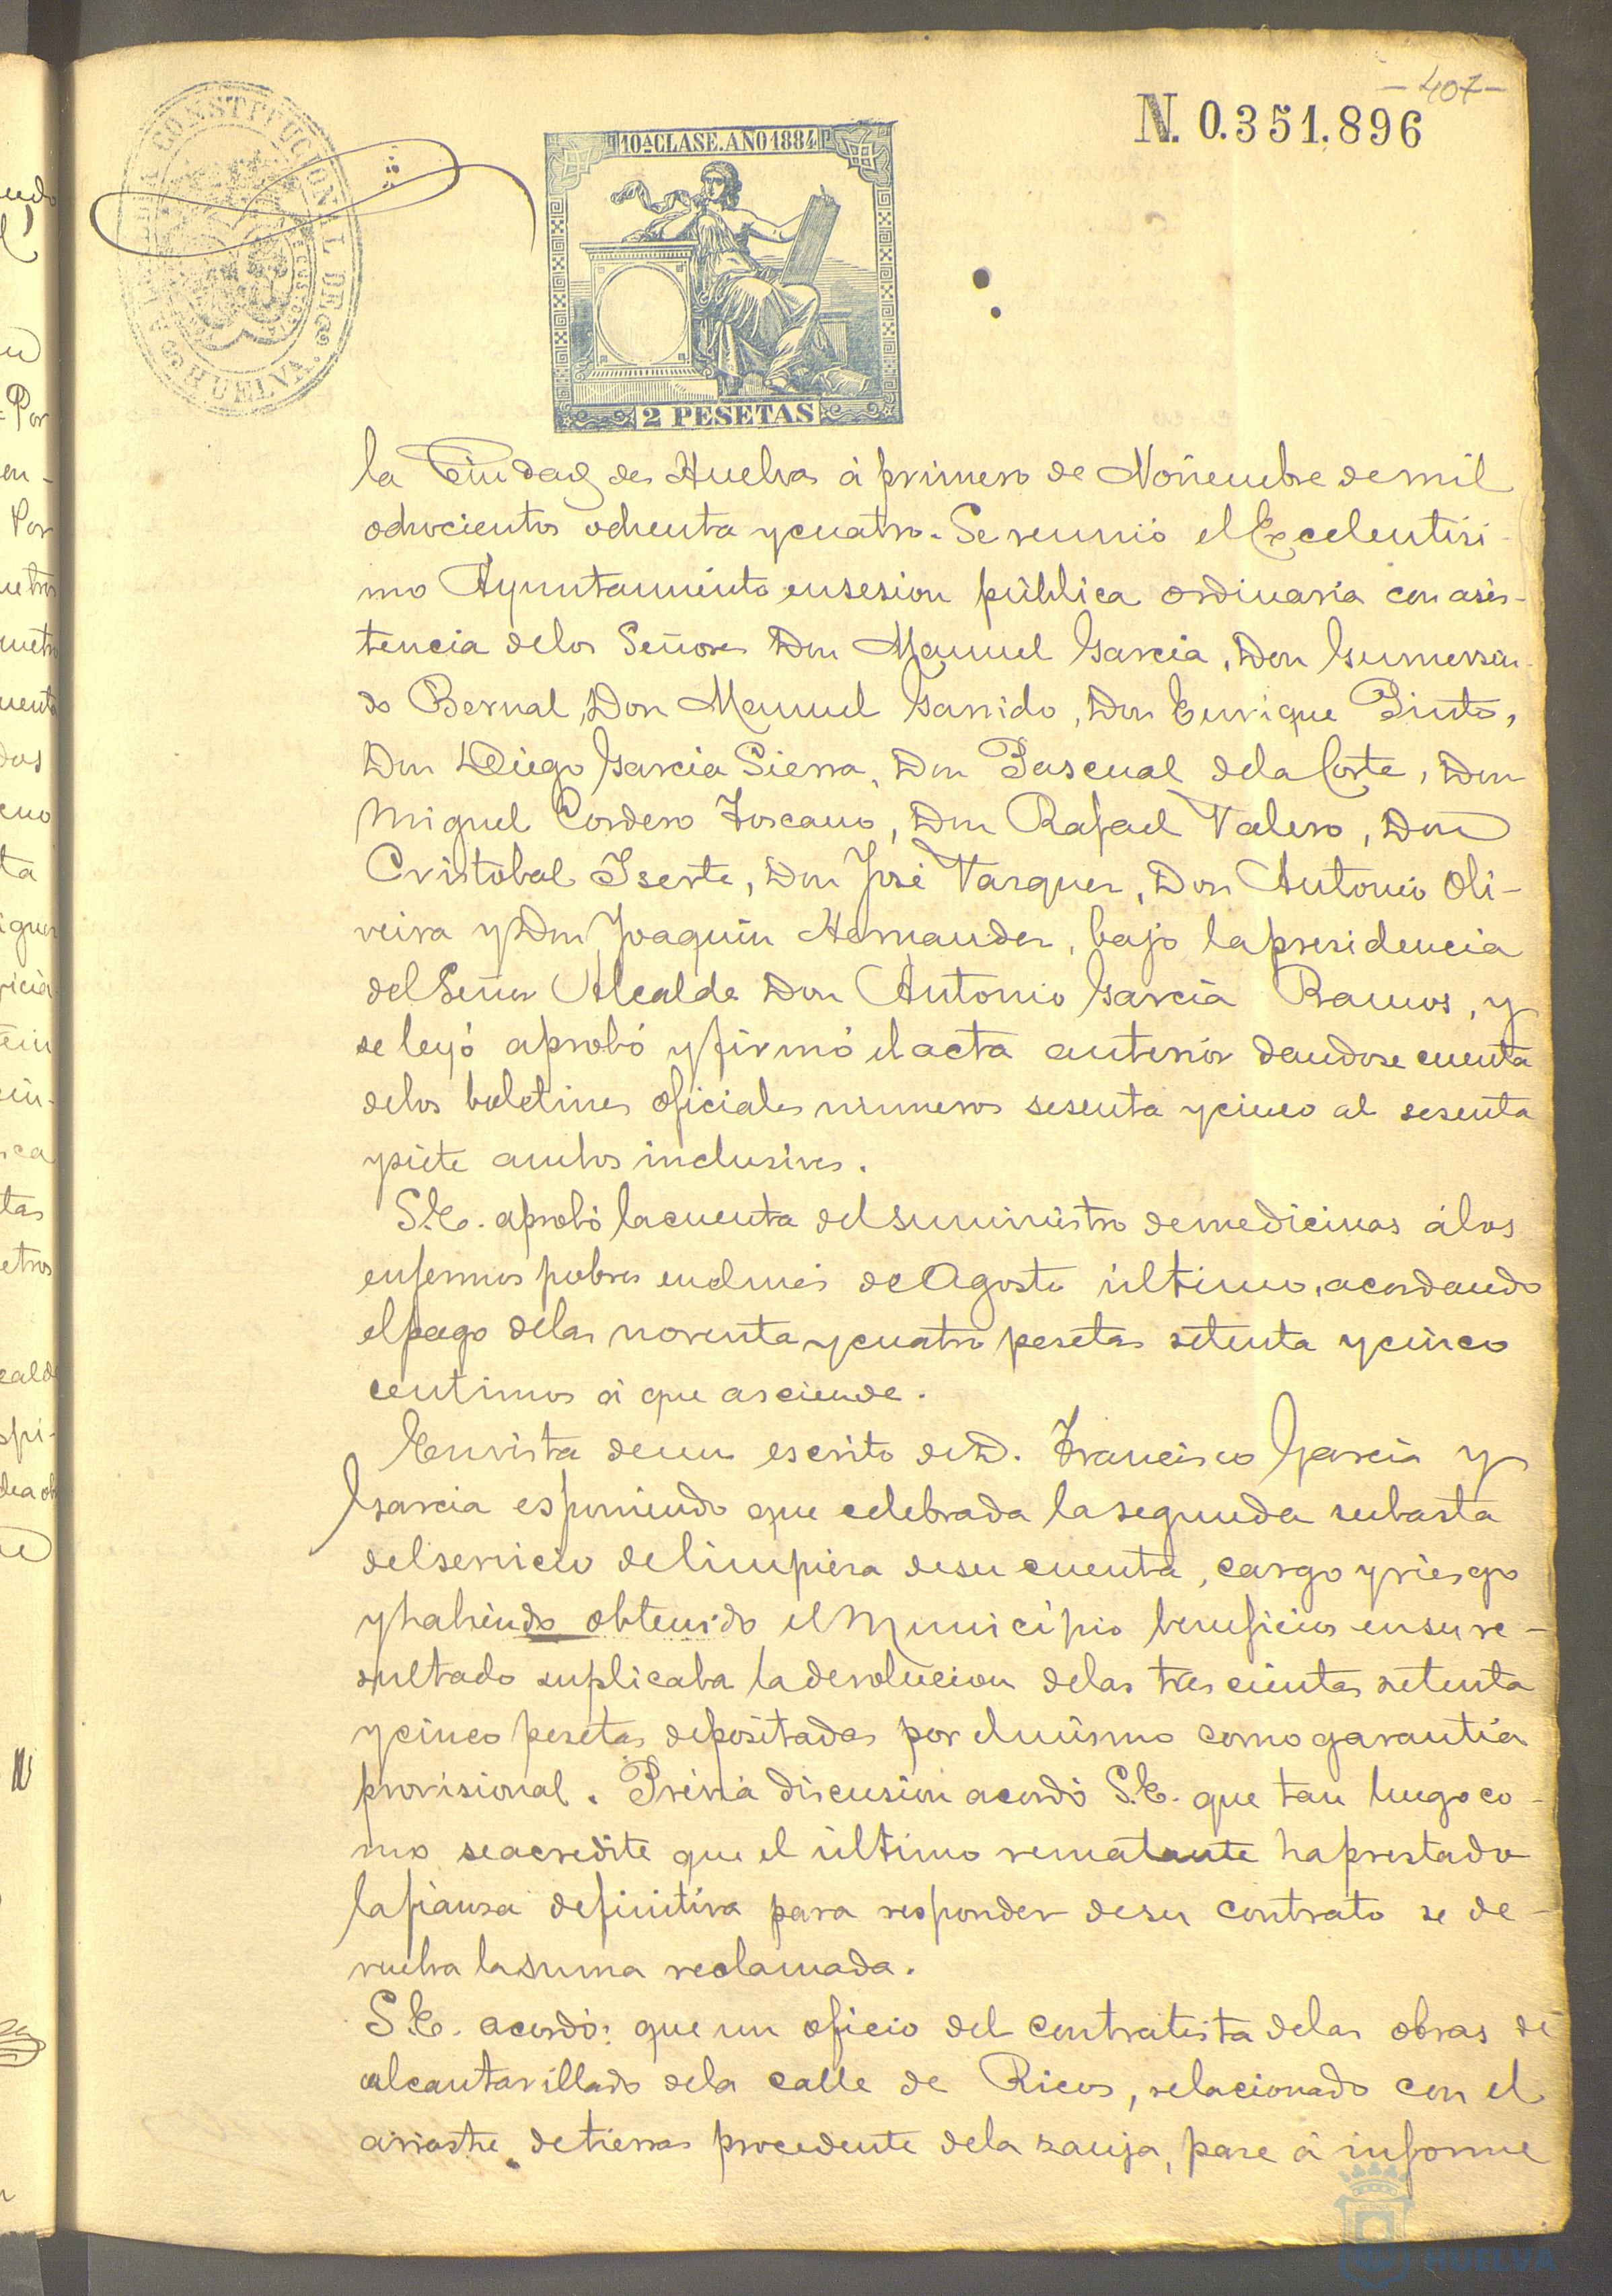 -407-
N. 0.351.896
CONSTITUCIONAL DE HUELVA.
10ª CLASE. AÑO 1884
2 PESETAS
la Ciudad de Huelva á primero de Noviembre de mil
ochocientos ochenta y cuatro. Se reunió el Excelentisi-
mo Ayuntamiento en sesion pública ordinaria con asis-
tencia de los Señores Don Manuel Garcia, Don Gumersin-
do Bernal, Don Manuel Garrido, Don Enrique Pinto,
Don Diego Garcia Sierra, Don Pascual de la Corte, Don
Miguel Cordero Toscano, Don Rafael Valero, Don
Cristobal Iserte, Don José Vazquez, Don Antonio Oli-
veira y Don Joaquin Hernandez, bajo la presidencia
del Señor Alcalde Don Antonio Garcia Ramos, y
se leyó aprobó y firmó el acta anterior dandose cuenta
de los boletines oficiales numeros sesenta y cinco al sesenta
y siete ambos inclusives.
S.E. aprobó la cuenta del suministro de medicinas á los
enfermos pobres en el mes de Agosto último, acordando
el pago de las noventa y cuatro pesetas setenta y cinco
centimos á que asciende.
En vista de un escrito de D. Francisco Garcia y
Garcia esponiendo que celebrada la segunda subasta
del servicio de limpieza de su cuenta, cargo y riesgo
y habiendo obtenido el Municipio beneficios en su re-
sultado suplicaba la devolucion de las trescientas setenta
y cinco pesetas depositadas por el mismo como garantia
provisional. Prévia discusion acordó S.E. que tan luego co-
mo se acredite que el último rematante ha prestado
la fianza definitiva para responder de su contrato se de-
vuelva la suma reclamada.
S.E. acordó: que un oficio del contratista de las obras de
alcantarillado de la calle de Ricos, relacionado con el
arrastre de tierras procedente de la zanja, pase á informe
HUELVA